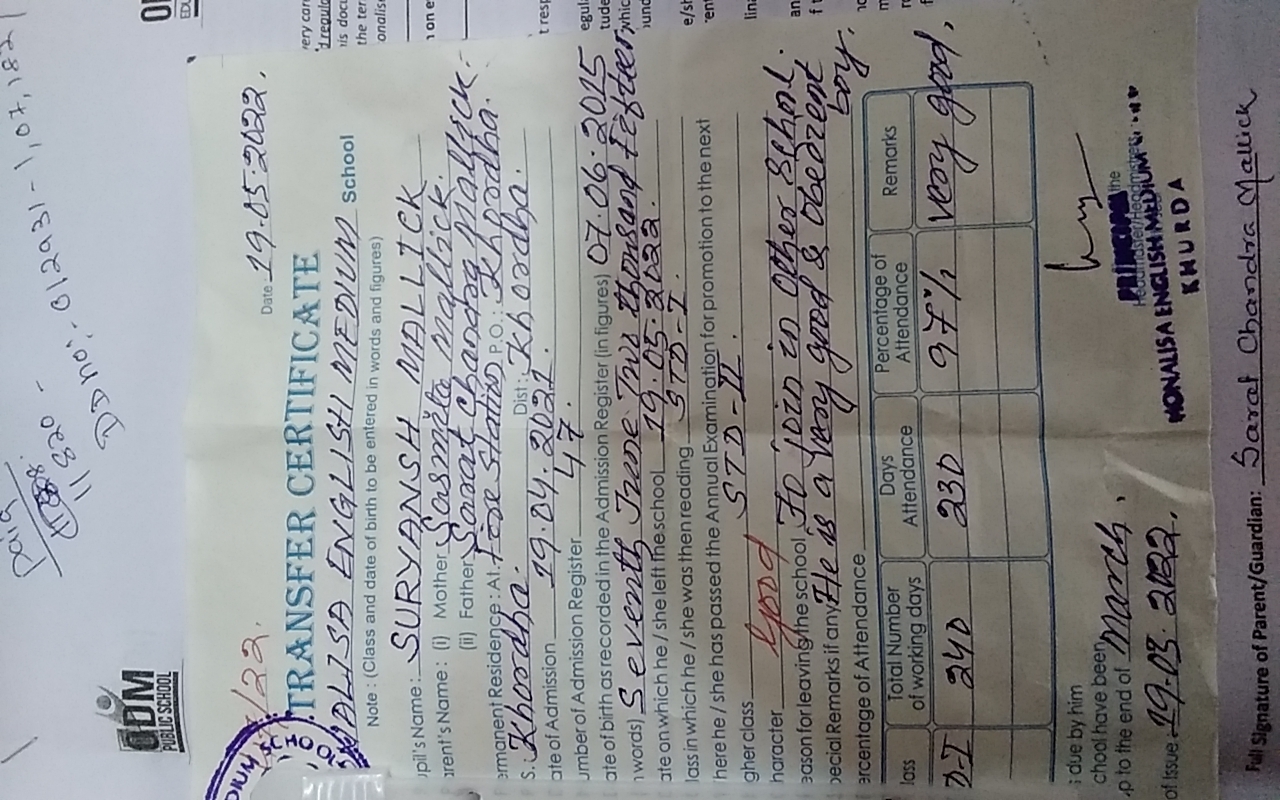 Paid
11820 -
DD no:- 012931 - 1,07,182/
ODM
PUBLIC SCHOOL
/22.
Date 19.05.2022.
TRANSFER CERTIFICATE
NALISA ENGLISH MEDIUM School
Note : (Class and date of birth to be entered in words and figures)
DIUM SCHOOL
upil's Name : SURYANSH MALLICK
arent's Name : (i) Mother Sasmita Mallick.
(ii) Father Sarat Chandra Mallick.
ermanent Residence : At. Fire Station P.O. : Khordha.
S. Khordha. Dist : Khordha.
ate of Admission 19.04.2021.
umber of Admission Register 47.
ate of birth as recorded in the Admission Register (in figures) 07.06.2015
n words) Seventh June Two thousand Fifteen
ate on which he / she left the school 19.05.2022.
lass in which he / she was then reading STD-I.
here he / she has passed the Annual Examination for promotion to the next
gher class STD-II.
haracter Good
eason for leaving the school To join in Other School.
pecial Remarks if any He is a very good & Obedient boy.
ercentage of Attendance
lass Total Number of working days Days Attendance Percentage of Attendance Remarks
D-I 240 230 97% very good.
s due by him
chool have been
up to the end of March.
of Issue 19.03.2022.
Headmaster/Headmistress
MONALISA ENGLISH MEDIUM
KHURDA
Full Signature of Parent/Guardian: Sarat Chandra Mallick